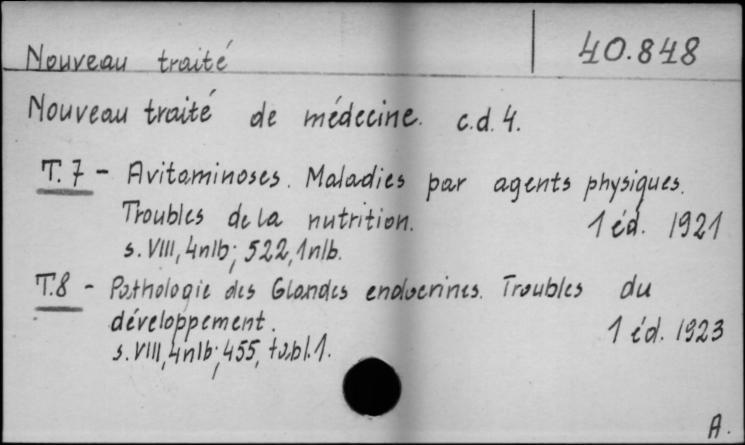 Nouveau traité 40.848
Nouveau traité de médecine. c.d. 4.
T. 7 - Avitaminoses. Maladies par agents physiques.
Troubles de la nutrition. 1 éd. 1921
s. VIII, 4nlb; 522, 1nlb.
T.8 - Pathologie des Glandes endocrines. Troubles du
développement. 1 éd. 1923
s. VIII, 4nlb; 455, tabl. 1.
A.